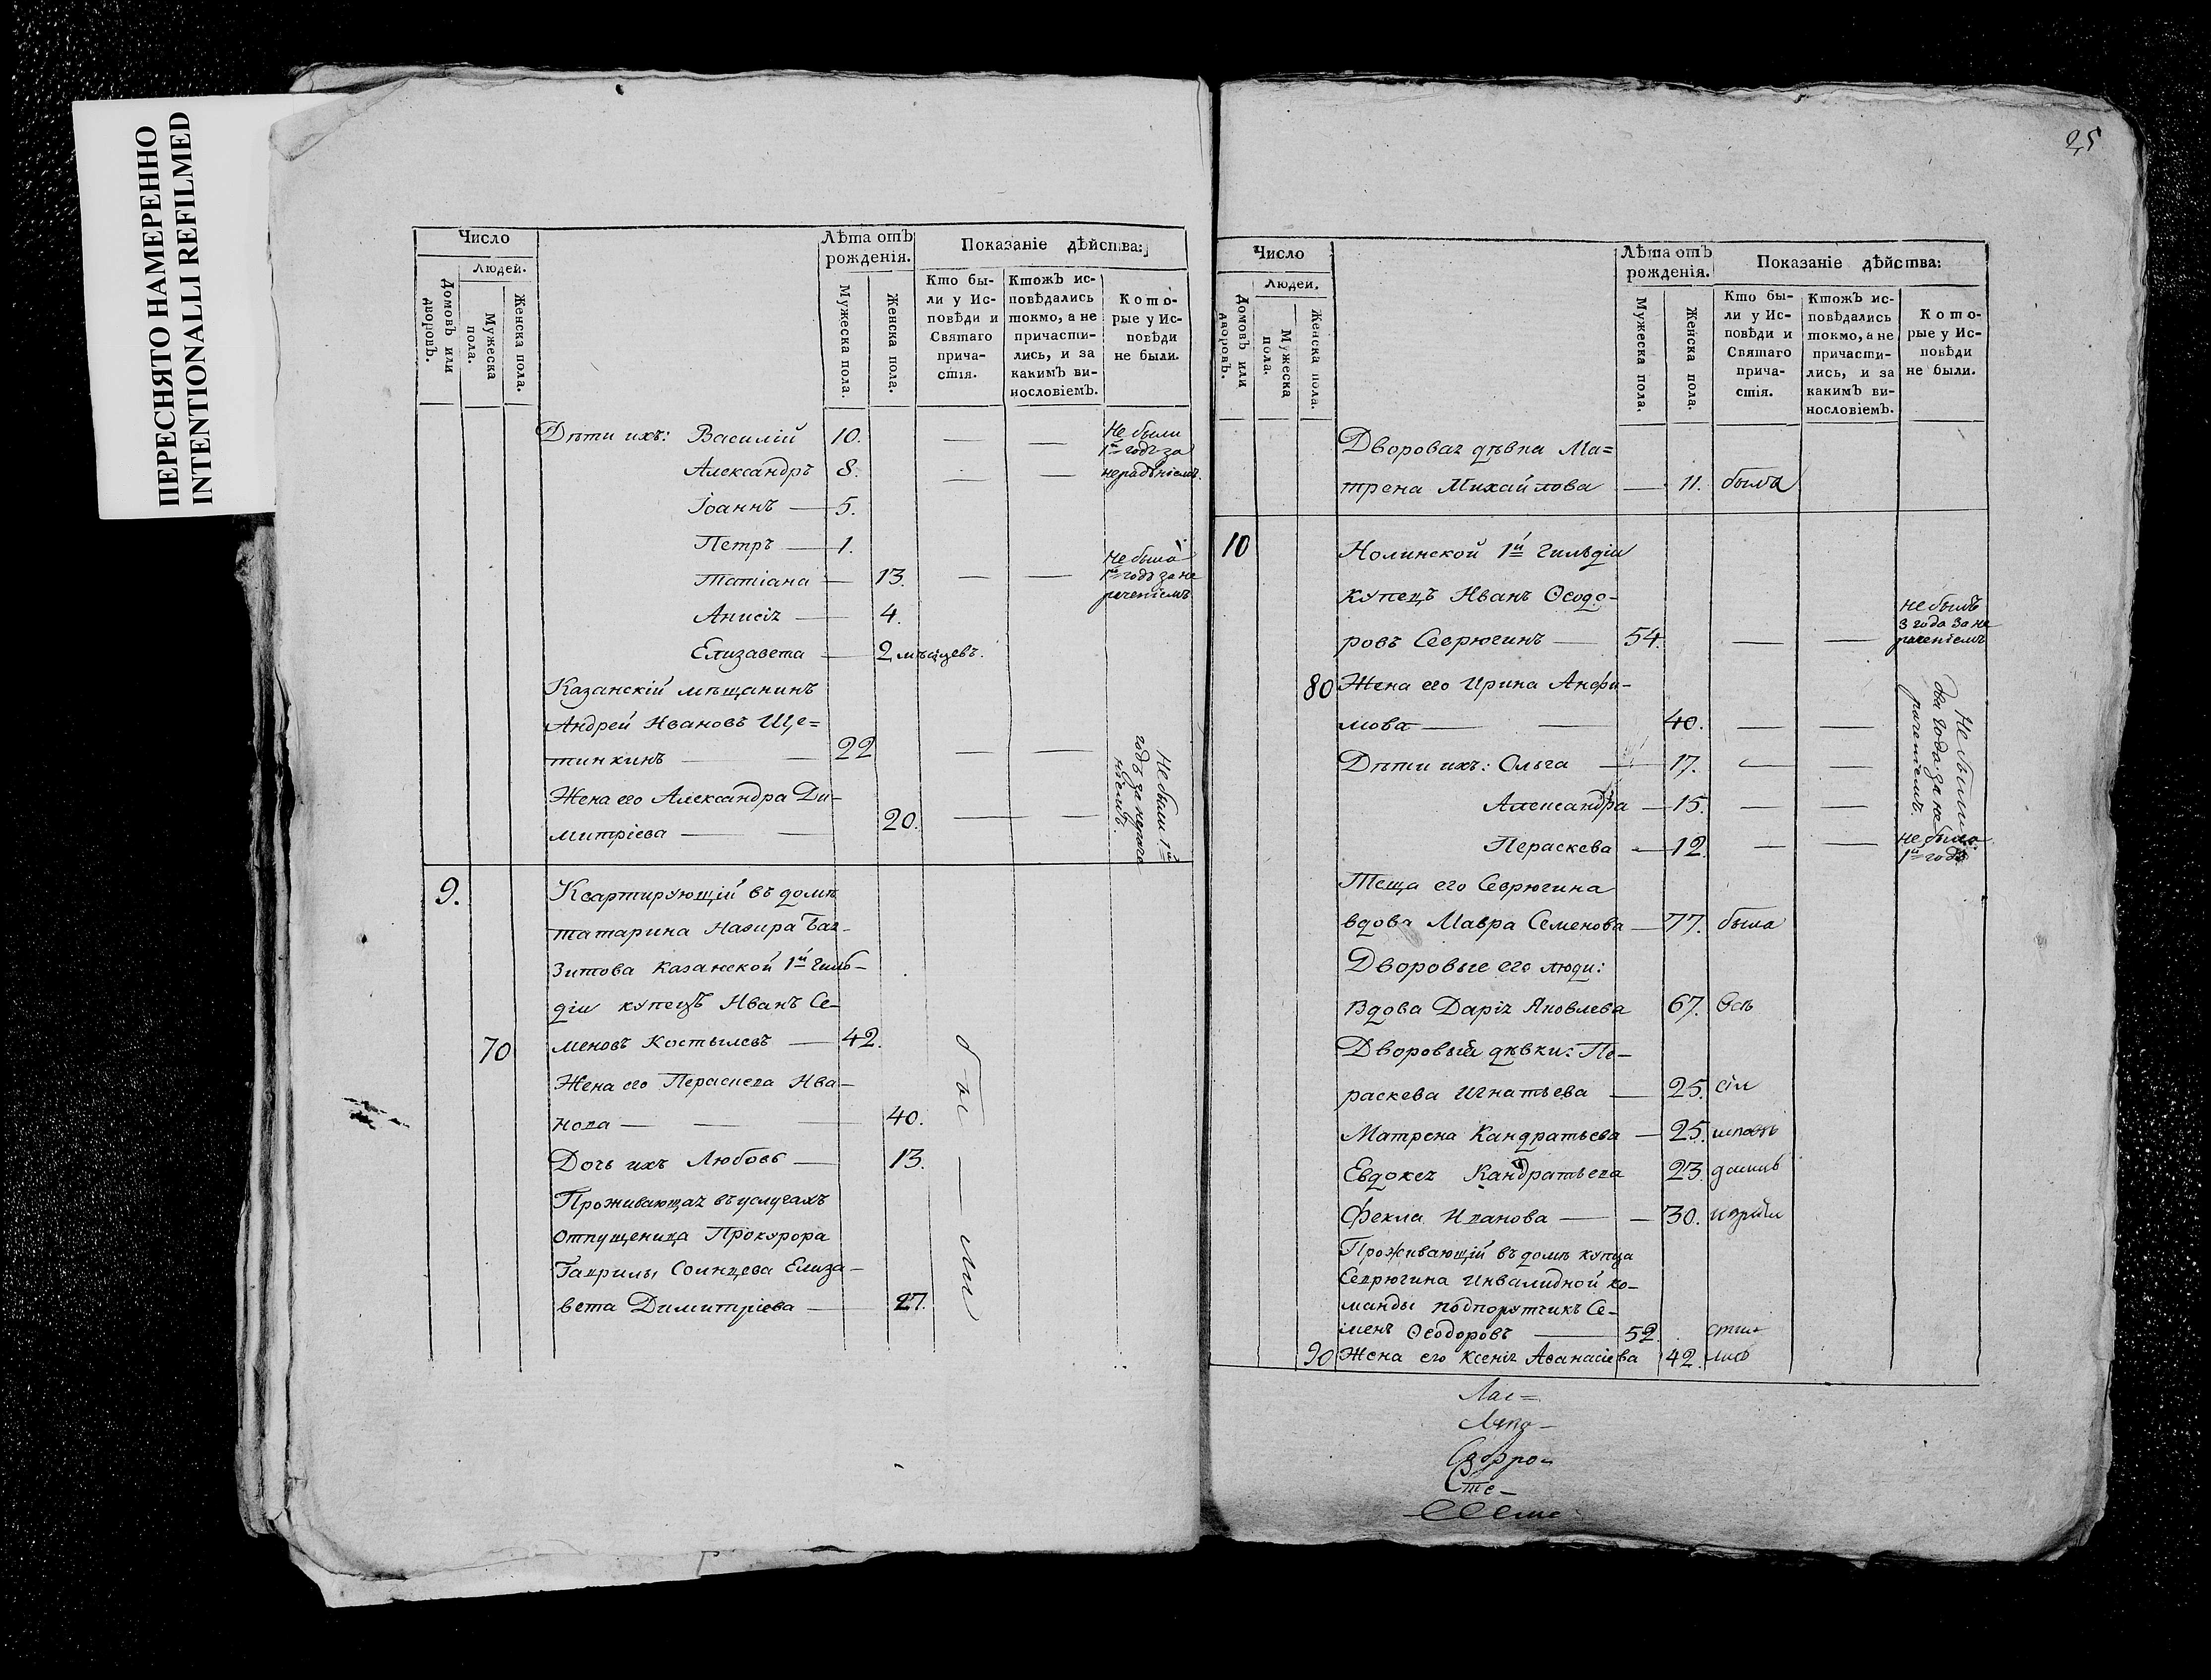 ПЕРЕСНЯТО НАМЕРЕННО
INTENTIONALLI REFILMED
Число
Людей.
Домовъ или дворовъ.
Мужеска пола.
Женска пола.
Лѣта отъ рожденія.
Мужеска пола.
Женска пола.
Показаніе дѣйства:
Кто бы-
ли у Ис-
повѣди и
Святаго
прича-
стія.
Ктожъ ис-
повѣдались
токмо, а не
причасти-
лись, и за
какимъ ви-
нословіемъ.
Кото-
рые у Ис-
повѣди
не были.
Дѣти ихъ: Василій 10. — — Не были
1й годъ за
нерадѣніемъ.
Александръ 8. — —
Іоаннъ — 5.
Петръ — 1.
Татіана — 13. — — Не была
1й годъ за не
раченіемъ
Анисія — 4.
Елизавета — 2 мѣсяцевъ.
Казанскій мѣщанинъ
Андрей Ивановъ Ще=
тинкинъ — — 22 — —
Жена его Александра Ди-
митріева — — 20. — —
Не были 1й
годъ за нераче
ніемъ.
9. Квартирующій въ домѣ
татарина Назира Бая-
зитова Казанской 1й гиль-
діи купецъ Иванъ Се-
70 меновъ Костылевъ — 42.
Жена его Параскева Ива-
нова — — — 40.
Дочь ихъ Любовь — 13.
Проживающая въ услугахъ
отпущеница Прокурора
Гаврилы Солнцева Елиза-
вета Димитріева — 27.
бы — ли
25
Число
Людей.
Домовъ или дворовъ.
Мужеска пола.
Женска пола.
Лѣта отъ рожденія.
Мужеска пола.
Женска пола.
Показаніе дѣйства:
Кто бы-
ли у Ис-
повѣди и
Святаго
прича-
стія.
Ктожъ ис-
повѣдались
токмо, а не
причасти-
лись, и за
какимъ ви-
нословіемъ.
Кото-
рые у Ис-
повѣди
не были.
Дворовая дѣвка Ма=
трена Михайлова — 11. была
10 Нолинской 1й гильдіи
купецъ Иванъ Ѳеодо-
ровъ Севрюгинъ — 54. — — не былъ
3 года за не
раченіемъ
80 Жена его Ирина Анфи-
мова — — 40. — —
Дѣти ихъ: Ольга — 17. — —
Александра — 15. — —
Не были
два года за не
раченіемъ.
Параскева — 12. — — не была
1й годъ
Теща его Севрюгина
вдова Мавра Семенова — 77. была
Дворовые его люди:
Вдова Дарія Яковлева 67. Всѣ
Дворовыя дѣвки: Па-
раскева Игнатьева — 25. сіи
Матрена Кандратьева — 25. исповѣ
Евдокея Кандратьева 23.
Фекла Иванова — — 30.
Проживающій въ домѣ купца
Севрюгина Инвалидной ко-
манды подпорутчикъ Се-
менъ Ѳеодоровъ — 52.
90 Жена его Ксенія Аѳанасіева 42. лись